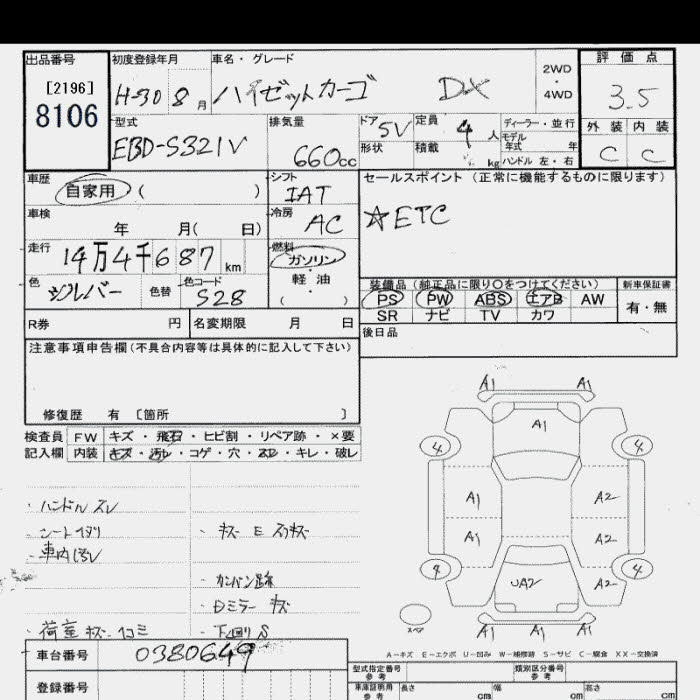 出品番号
[2196]
8106
初度登録年月
H-30 8月
車名・グレード
ハイゼットカーゴ DX
2WD
・
4WD
評価点
3.5
外装 内装
C C
型式
EBD-S321V
排気量
660cc
ドア 5V
形状
定員 4人
積載 kg
ディーラー・並行
モデル
年式 年
ハンドル 左・右
車歴
自家用 ( )
シフト
IAT
車検
年 月( 日)
冷房
AC
走行
14万4千687km
燃料
ガソリン
・
軽油
( )
色
シルバー
色替
色コード
S28
R券 円
名変期限 月 日
セールスポイント (正常に機能するものに限ります)
☆ETC
装備品(純正品に限り○をつけてください)
PS PW ABS エアB AW
SR ナビ TV カワ
新車保証書
有・無
後日品
注意事項申告欄(不具合内容等は具体的に記入して下さい)
修復歴 有 [箇所 ]
検査員
記入欄
FW キズ・飛石・ヒビ割・リペア跡・×要
内装 キズ・汚レ・コゲ・穴・スレ・キレ・破レ
・ハンドルスレ
・シートイタリ
・車内汚レ
・荷室キズ・凹ミ
・キズ E スリキズ
・カンバン跡
・Dミラーキズ
・下廻りS
A1 A1
A1
4 4
A1 A2
A1 A2
4 4
UA2 A2
A1 A1 A1
スペア
A-キズ E-エクボ U-凹み W-補修跡 S-サビ C-腐食 XX-交換済
車台番号 0380649
登録番号
型式指定番号
参考
類別区分番号
参考
車庫証明用
参考
長さ cm
幅 cm
高さ cm